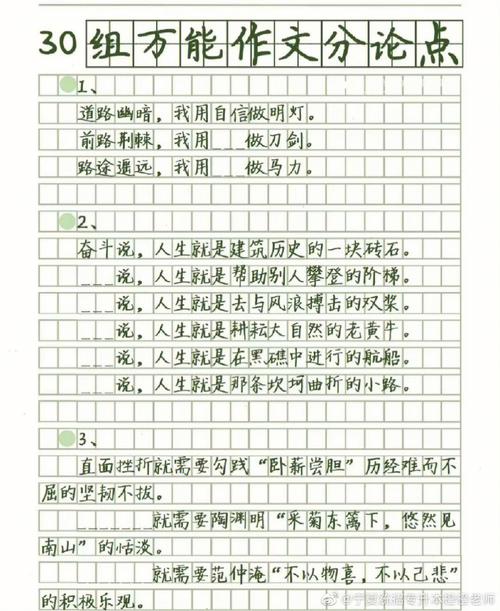 30组万能作文分论点
1、
道路幽暗，我用自信做明灯。
前路荆棘，我用___做刀剑。
路途遥远，我用___做马力。
2、
奋斗说，人生就是建筑历史的一块砖石。
___说，人生就是帮助别人攀登的阶梯。
___说，人生就是去与风浪搏击的双桨。
___说，人生就是耕耘大自然的老黄牛。
___说，人生就是在黑礁中进行的航船。
___说，人生就是那条坎坷曲折的小路。
3、
直面挫折就需要勾践“卧薪尝胆”历经难而不
屈的坚韧不拔。
______就需要陶渊明“采菊东篱下，悠然见
南山”的恬淡。
______就需要范仲淹“不以物喜，不以己悲”
的积极乐观。